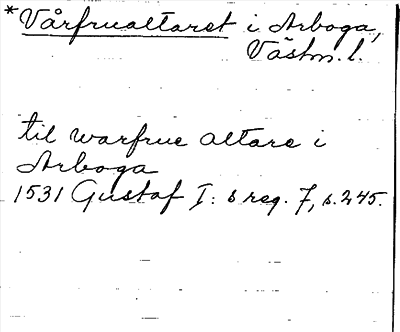 *Vårfrualtaret i Arboga,
Västm. l.
til warfrue altare i
Arboga
1531 Gustaf I: s reg. 7, s. 245.